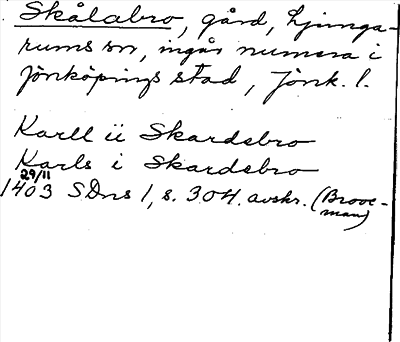 Skålabro, gård, Ljunga-
rums sn, ingår numera i
Jönköpings stad, Jönk. l.
Karll ii Skardebro
Karls i Skardebro
29/11
1403 SDns 1, s. 304. avskr. (Brooc-
man)